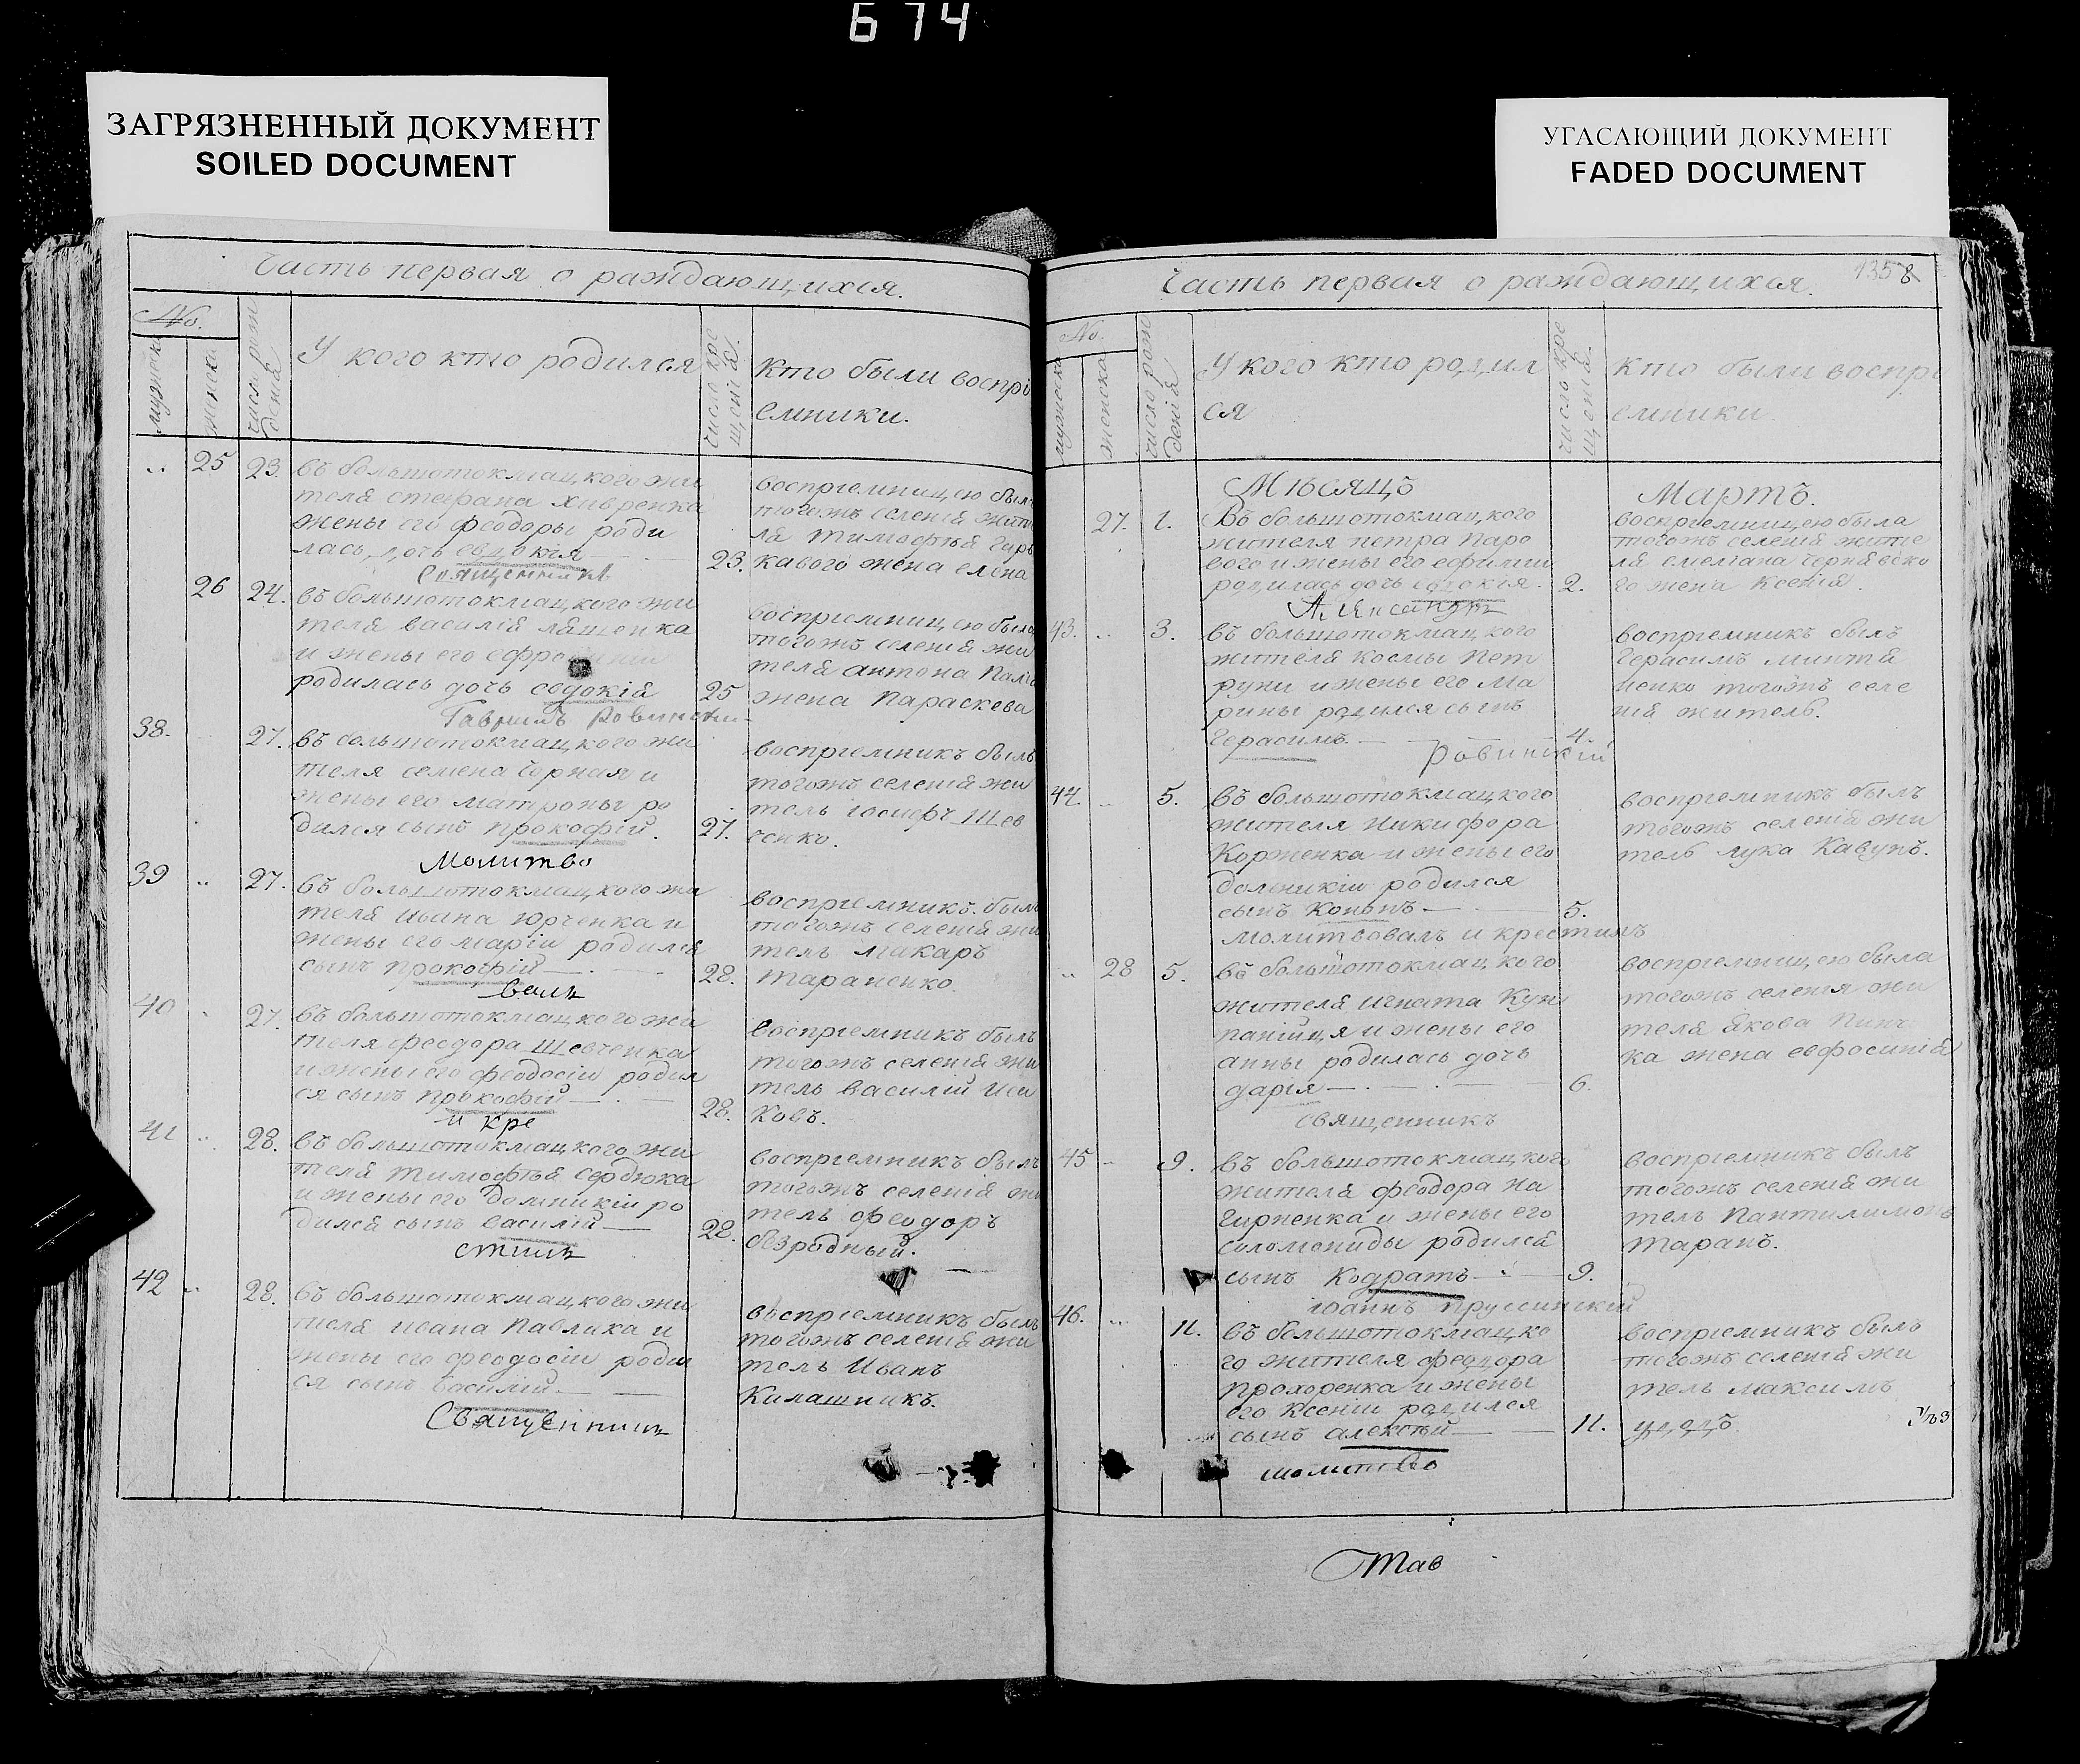 674
ЗАГРЯЗНЕННЫЙ ДОКУМЕНТ
SOILED DOCUMENT
УГАСАЮЩИЙ ДОКУМЕНТ
FADED DOCUMENT
Часть первая о раждающихся.
No.
мужеска
женска
число рож
денія
У кого кто родился
число кре
щенія.
Кто были воспрі
емники.
25 23. въ большотокмацкого жи
теля стефана Хивренка
жены его феодоры роди
лась дочь евдокія
23.
воспріемницею была
тогожъ селенія жите
ля тимофѣя
кавого жена елена
священникъ
26 24. въ большотокмацкого жи
теля василія ляшенка
и жены его
родилась дочь евдокія
25
воспріемницею была
тогожъ селенія жи
теля антона
жена Параскева
Гавріилъ Ровинскій
38. 27. въ большотокмацкого жи
теля семена Чорная и
жены его матроны ро
дился сынъ прокофій.
27.
воспріемникъ былъ
тогожъ селенія жи
тель іосифъ Шев
ченко.
Молитво
39 27. въ большотокмацкого жи
теля ивана юрченка и
жены его маріи родился
сынъ прокофій
28.
воспріемникъ былъ
тогожъ селенія жи
тель макаръ
тараненко.
валъ
40 27. въ большотокмацкого жи
теля феодора Шевченка
и жены его феодосіи родил
ся сынъ прокофій
28.
воспріемникъ былъ
тогожъ селенія жи
тель василій
ковъ.
и кре
41 28. въ большотокмацкого жи
теля тимофѣя сердюка
и жены его домникіи ро
дился сынъ василій
28.
воспріемникъ былъ
тогожъ селенія жи
тель феодоръ
безродный.
стилъ
42 28. въ большотокмацкого жи
теля ивана Павлика и
жены его феодосіи родил
ся сынъ василій
воспріемникъ былъ
тогожъ селенія жи
тель Иванъ
Килашникъ.
Священникъ
Часть первая о раждающихся.
1358
No.
мужеска
женска
число рож
денія
У кого кто родил
ся
число кре
щенія.
Кто были воспрі
емники.
Мѣсяцъ Мартъ.
27. 1. Въ большотокмацкого
жителя петра
и жены его ефиміи
родилась дочь евдокія.
2.
воспріемницею была
тогожъ селенія жите
ля емеліана Чернявско
го жена Ксенія.
Александр
43. 3. въ большотокмацкого
жителя космы Пет
руни и жены его Ма
рины родился сынъ
Герасимъ.
4.
воспріемникъ былъ
Герасимъ
ненко тогожъ селе
нія житель.
Ровинскій
44. 5. въ большотокмацкого
жителя никифора
Корженка и жены его
домникіи родился
сынъ Кононъ
5.
воспріемникъ былъ
тогожъ селенія жи
тель лука Кавунъ.
молитвовалъ и крестилъ
28 5. въ большотокмацкого
жителя игната Куп
и жены его
анны родилась дочь
дарія
6.
воспріемницею была
тогожъ селенія жи
теля якова
ка жена евфосинія
священникъ
45 9. въ большотокмацкого
жителя феодора На
гирненка и жены его
соломониды родился
сынъ Кодратъ
9.
воспріемникъ былъ
тогожъ селенія жи
тель Пантилимонъ
таранъ.
іоаннъ Пруссинскій
46. 11. въ большотокмацко
го жителя феодора
прохоренка и жены
его Ксеніи родился
сынъ алексѣй
11.
воспріемникъ былъ
тогожъ селенія жи
тель максимъ
молитво
Тав